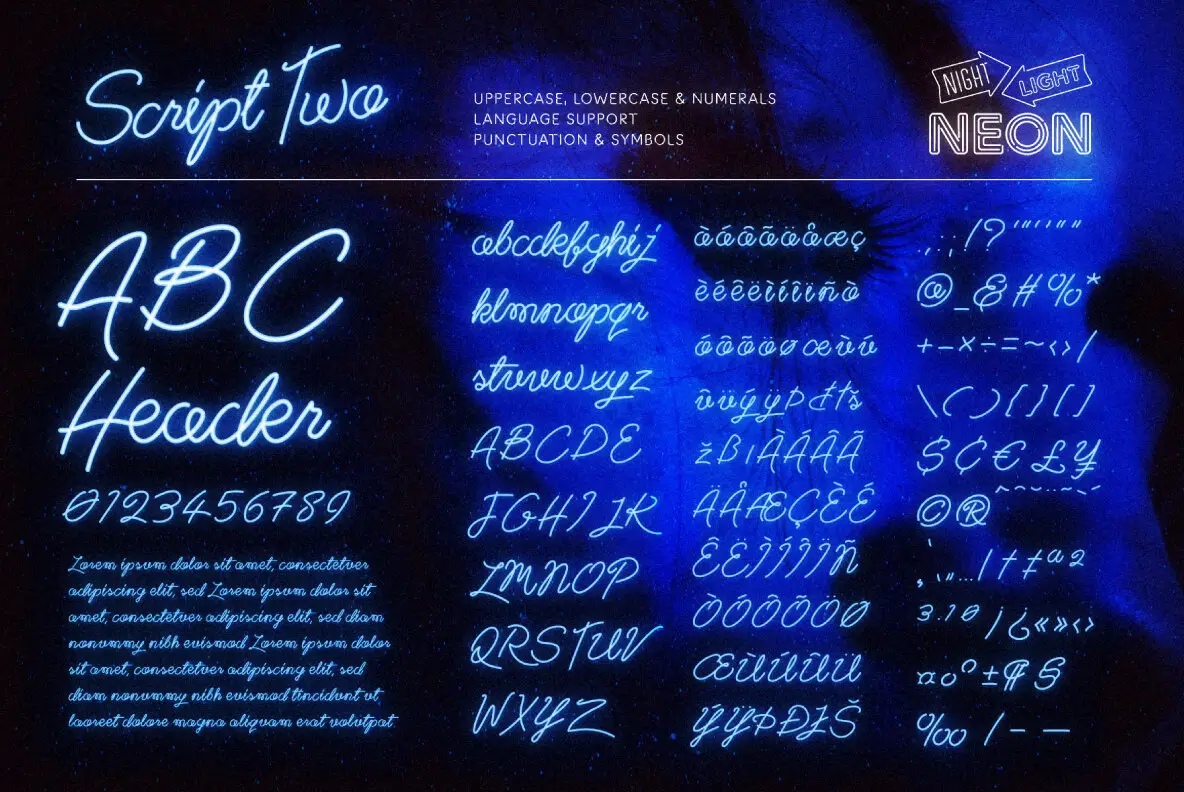 Script Two
UPPERCASE, LOWERCASE & NUMERALS
LANGUAGE SUPPORT
PUNCTUATION & SYMBOLS
NIGHT LIGHT
NEON
ABC
Header
0123456789
Lorem ipsum dolor sit amet, consectetuer
adipiscing elit, sed Lorem ipsum dolor sit
amet, consectetuer adipiscing elit, sed diam
nonummy nibh euismod Lorem ipsum dolor
sit amet, consectetuer adipiscing elit, sed
diam nonummy nibh euismod tincidunt ut
laoreet dolore magna aliquam erat volutpat.
abcdefghij
klmnopqr
stuvwxyz
ABCDE
FGHIJK
LMNOP
QRSTUV
WXYZ
àáâãäåæç
èéêëìíîïñò
óôõöøœùú
ûüýÿÞ
žßıÀÁÂÃ
ÄÅÆÇÈÉ
ÊËÌÍÎÏÑ
ÒÓÔÕÖØ
ŒÙÚÛÜ
ÝŸÞÐŁŠ
.,:;!?"'
@_&#%*
+−×÷=~<>/
\()[]
$¢€£¥
©®
…|†‡ª²
³¹º¡¿«»‹›
¤º°±¶§
‰/–—